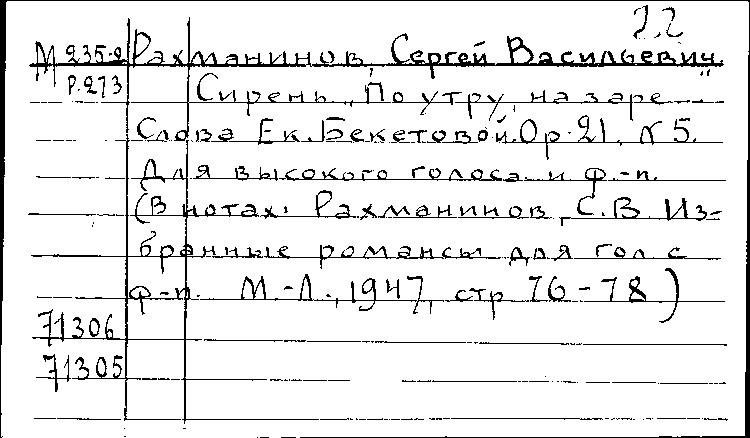 22
М 235.2 Рахманинов, Сергей Васильевич.
Р.273 Сирень „По утру, на заре —"
Слова Ек. Бекетовой. Ор. 21, № 5.
Для высокого голоса и ф.-п.
(В нотах: Рахманинов, С.В. Из-
бранные романсы для гол с
ф-п. М.-Л., 1947, стр 76-78)
71306
71305